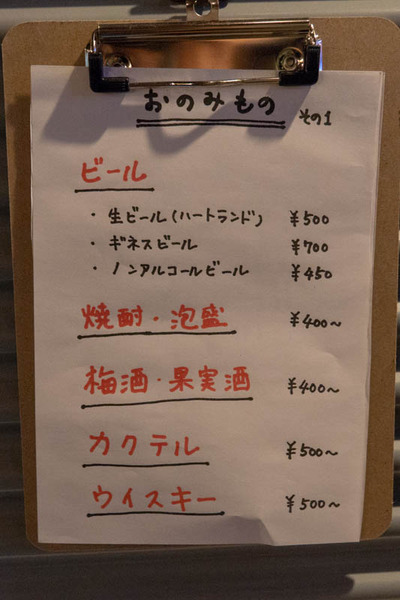 おのみもの その1
ビール
・生ビール(ハートランド) ¥500
・ギネスビール ¥700
・ノンアルコールビール ¥450
焼酎・泡盛 ¥400~
梅酒・果実酒 ¥400~
カクテル ¥500~
ウイスキー ¥500~